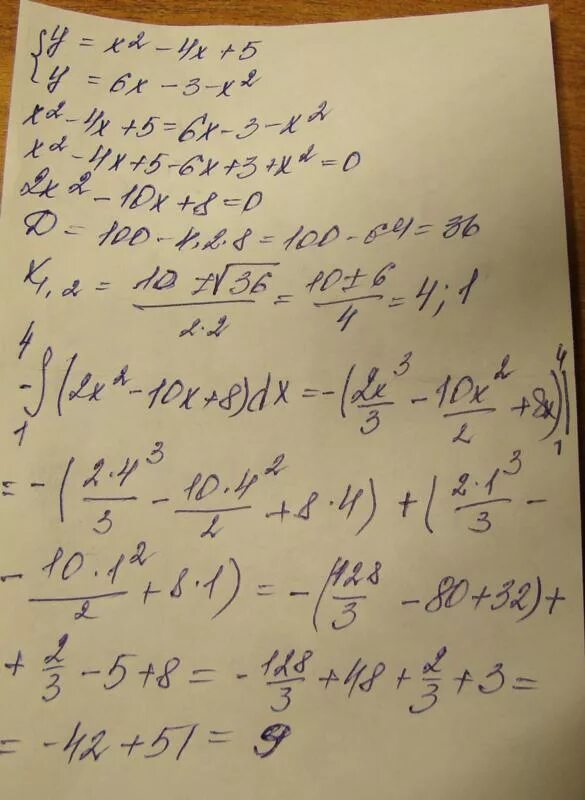 {y = x² - 4x + 5
y = 6x - 3 - x²
x² - 4x + 5 = 6x - 3 - x²
x² - 4x + 5 - 6x + 3 + x² = 0
2x² - 10x + 8 = 0
D = 100 - 4·2·8 = 100 - 64 = 36
x₁,₂ = (10 ± √36)/(2·2) = (10 ± 6)/4 = 4; 1
-∫₁⁴ (2x² - 10x + 8)dx = -(2x³/3 - 10x²/2 + 8x)|₁⁴
= -(2·4³/3 - 10·4²/2 + 8·4) + (2·1³/3 -
- 10·1²/2 + 8·1) = -(128/3 - 80 + 32) +
+ 2/3 - 5 + 8 = -128/3 + 48 + 2/3 + 3 =
= -42 + 51 = 9